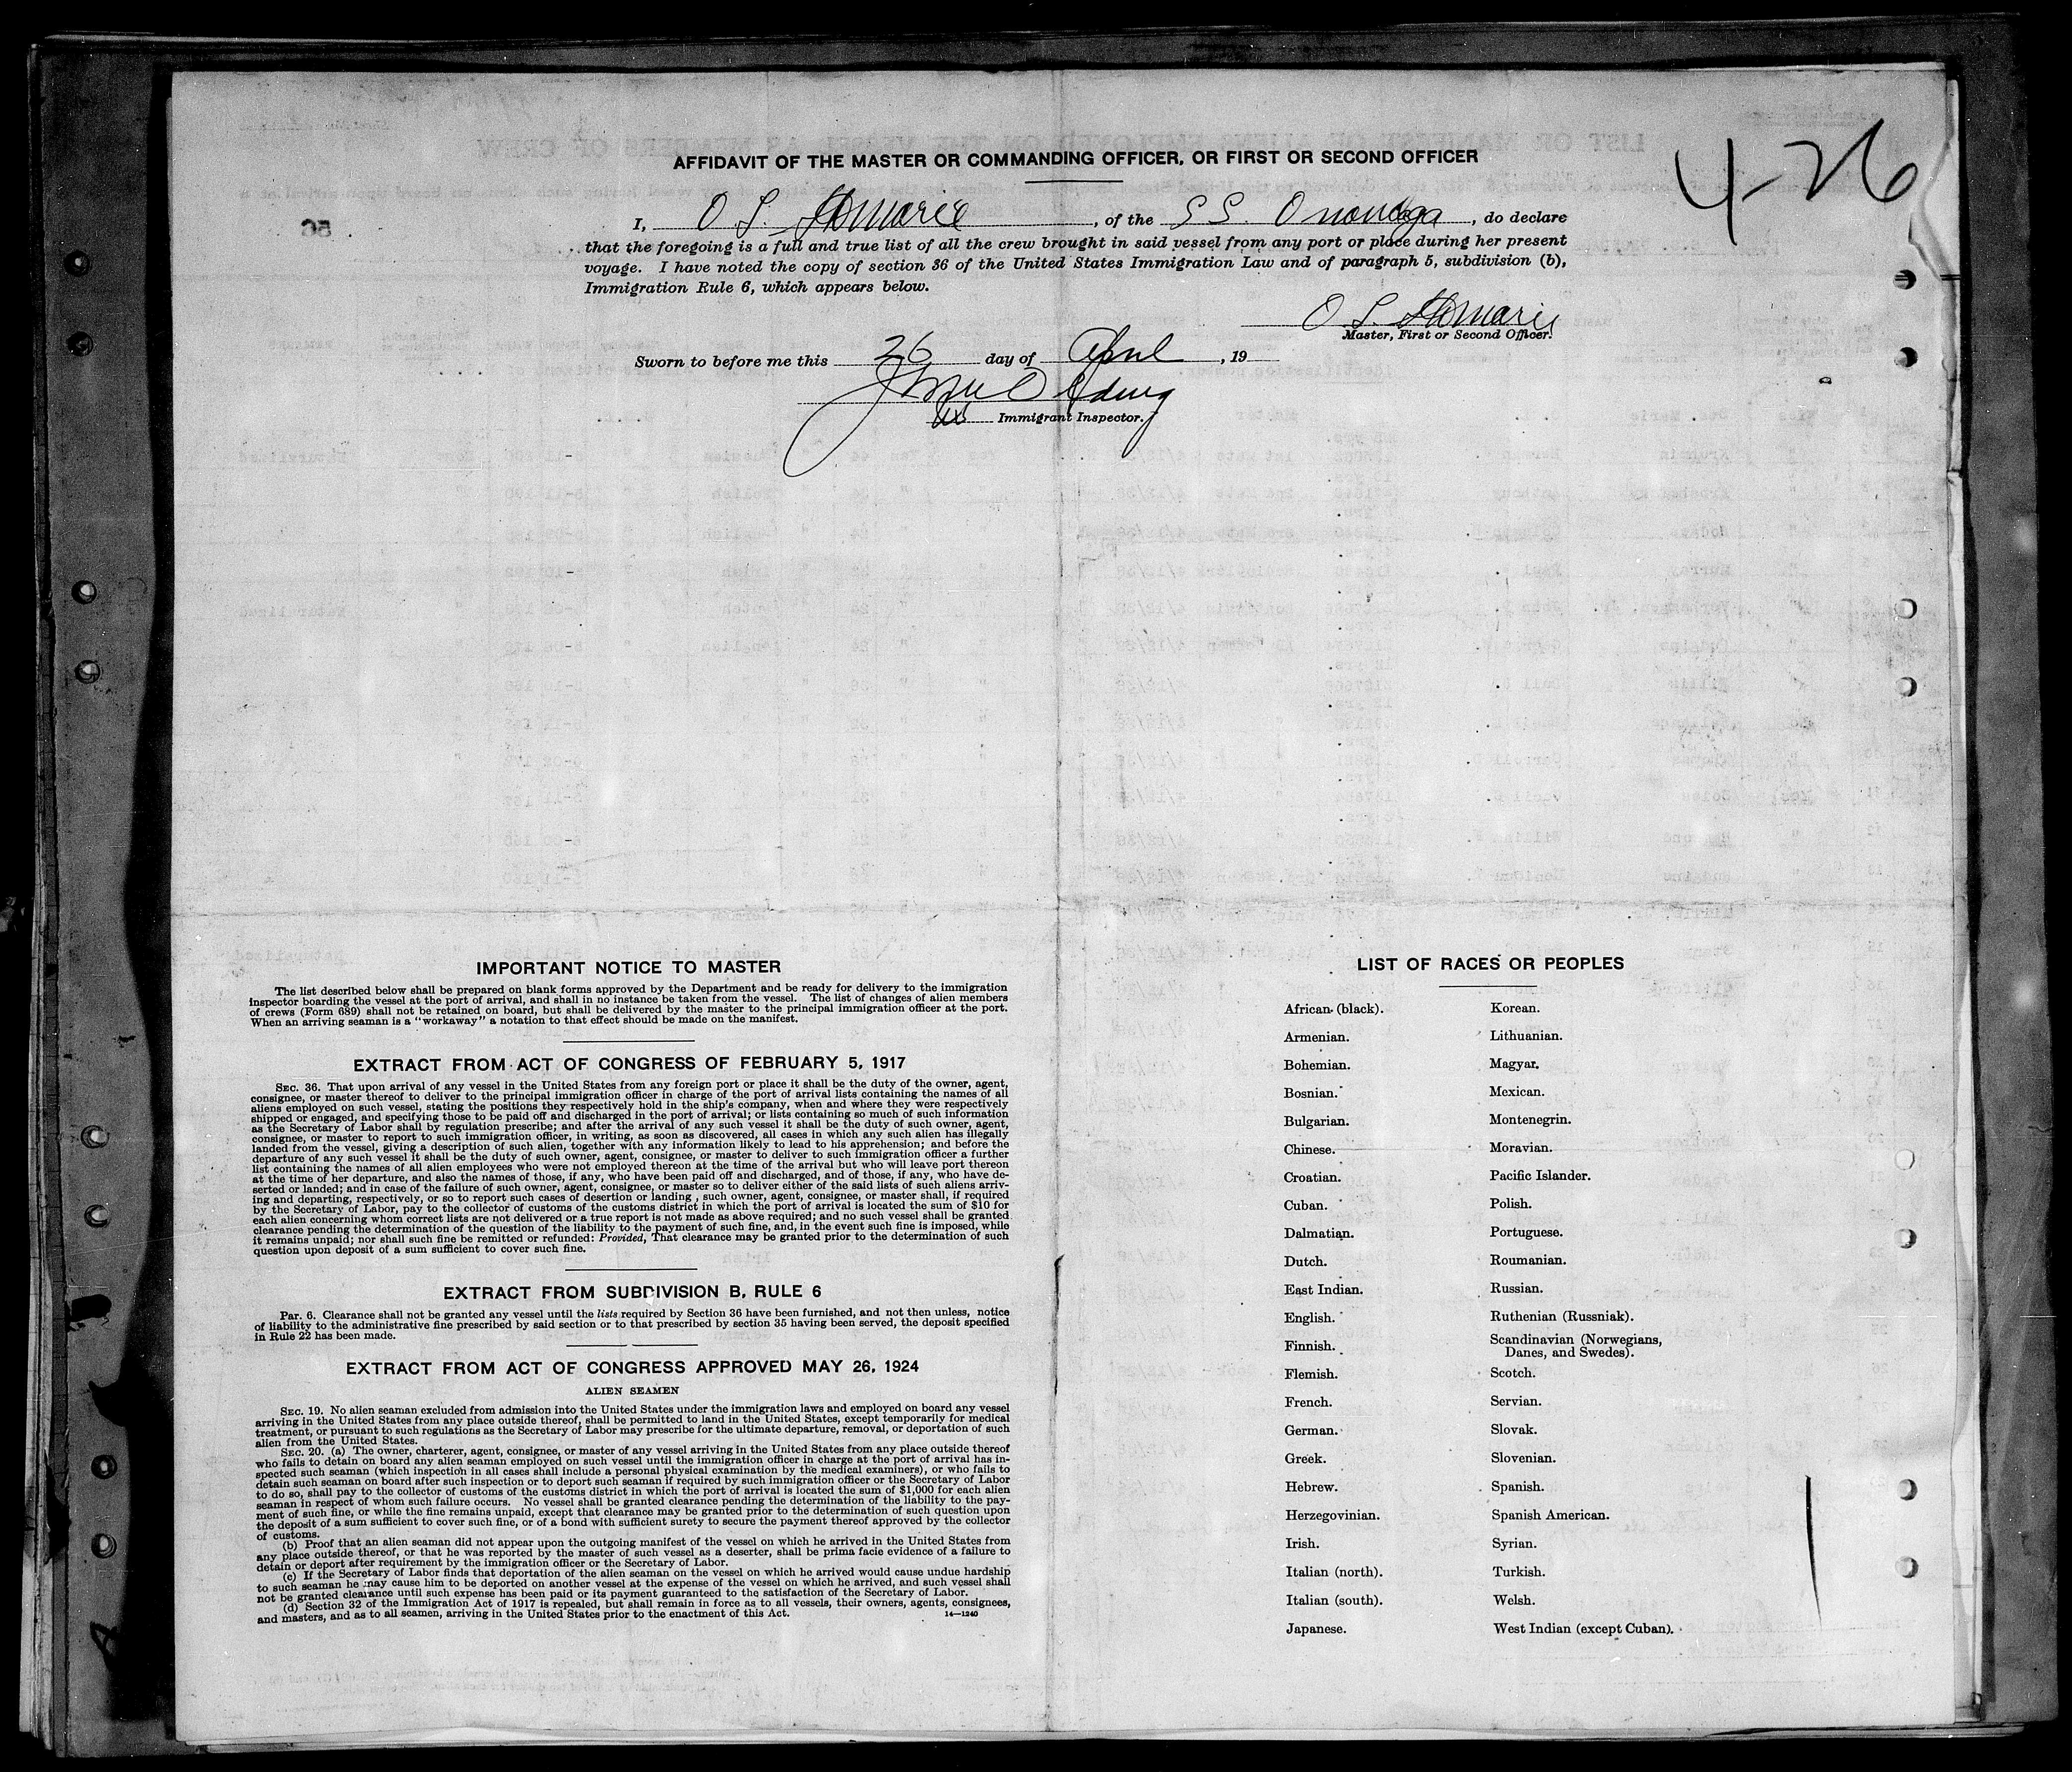 AFFIDAVIT OF THE MASTER OR COMMANDING OFFICER, OR FIRST OR SECOND OFFICER
4-26
I, O. L. St Marie, of the SS. Onondaga, do declare
that the foregoing is a full and true list of all the crew brought in said vessel from any port or place during her present
voyage. I have noted the copy of section 36 of the United States Immigration Law and of paragraph 5, subdivision (b),
Immigration Rule 6, which appears below.
O. L. St Marie
Master, First or Second Officer.
Sworn to before me this 26 day of April, 19
Immigrant Inspector.
IMPORTANT NOTICE TO MASTER
The list described below shall be prepared on blank forms approved by the Department and be ready for delivery to the immigration
inspector boarding the vessel at the port of arrival, and shall in no instance be taken from the vessel. The list of changes of alien members
of crews (Form 689) shall not be retained on board, but shall be delivered by the master to the principal immigration officer at the port.
When an arriving seaman is a "workaway" a notation to that effect should be made on the manifest.
EXTRACT FROM ACT OF CONGRESS OF FEBRUARY 5, 1917
SEC. 36. That upon arrival of any vessel in the United States from any foreign port or place it shall be the duty of the owner, agent,
consignee, or master thereof to deliver to the principal immigration officer in charge of the port of arrival lists containing the names of all
aliens employed on such vessel, stating the positions they respectively hold in the ship's company, when and where they were respectively
shipped or engaged, and specifying those to be paid off and discharged in the port of arrival; or lists containing so much of such information
as the Secretary of Labor shall by regulation prescribe; and after the arrival of any such vessel it shall be the duty of such owner, agent,
consignee, or master to report to such immigration officer, in writing, as soon as discovered, all cases in which any such alien has illegally
landed from the vessel, giving a description of such alien, together with any information likely to lead to his apprehension; and before the
departure of any such vessel it shall be the duty of such owner, agent, consignee, or master to deliver to such immigration officer a further
list containing the names of all alien employees who were not employed thereon at the time of the arrival but who will leave port thereon
at the time of her departure, and also the names of those, if any, who have been paid off and discharged, and of those, if any, who have de-
serted or landed; and in case of the failure of such owner, agent, consignee, or master so to deliver either of the said lists of such aliens arriv-
ing and departing, respectively, or so to report such cases of desertion or landing, such owner, agent, consignee, or master shall, if required
by the Secretary of Labor, pay to the collector of customs of the customs district in which the port of arrival is located the sum of $10 for
each alien concerning whom correct lists are not delivered or a true report is not made as above required; and no such vessel shall be granted
clearance pending the determination of the question of the liability to the payment of such fine, and, in the event such fine is imposed, while
it remains unpaid; nor shall such fine be remitted or refunded: Provided, That clearance may be granted prior to the determination of such
question upon deposit of a sum sufficient to cover such fine.
EXTRACT FROM SUBDIVISION B, RULE 6
Par. 6. Clearance shall not be granted any vessel until the lists required by Section 36 have been furnished, and not then unless, notice
of liability to the administrative fine prescribed by said section or to that prescribed by section 35 having been served, the deposit specified
in Rule 22 has been made.
EXTRACT FROM ACT OF CONGRESS APPROVED MAY 26, 1924
ALIEN SEAMEN
SEC. 19. No alien seaman excluded from admission into the United States under the immigration laws and employed on board any vessel
arriving in the United States from any place outside thereof, shall be permitted to land in the United States, except temporarily for medical
treatment, or pursuant to such regulations as the Secretary of Labor may prescribe for the ultimate departure, removal, or deportation of such
alien from the United States.
SEC. 20. (a) The owner, charterer, agent, consignee, or master of any vessel arriving in the United States from any place outside thereof
who fails to detain on board any alien seaman employed on such vessel until the immigration officer in charge at the port of arrival has in-
spected such seaman (which inspection in all cases shall include a personal physical examination by the medical examiners), or who fails to
detain such seaman on board after such inspection or to deport such seaman if required by such immigration officer or the Secretary of Labor
to do so, shall pay to the collector of customs of the customs district in which the port of arrival is located the sum of $1,000 for each alien
seaman in respect of whom such failure occurs. No vessel shall be granted clearance pending the determination of the liability to the pay-
ment of such fine, or while the fine remains unpaid, except that clearance may be granted prior to the determination of such question upon
the deposit of a sum sufficient to cover such fine, or of a bond with sufficient surety to secure the payment thereof approved by the collector
of customs.
(b) Proof that an alien seaman did not appear upon the outgoing manifest of the vessel on which he arrived in the United States from
any place outside thereof, or that he was reported by the master of such vessel as a deserter, shall be prima facie evidence of a failure to
detain or deport after requirement by the immigration officer or the Secretary of Labor.
(c) If the Secretary of Labor finds that deportation of the alien seaman on the vessel on which he arrived would cause undue hardship
to such seaman he may cause him to be deported on another vessel at the expense of the vessel on which he arrived, and such vessel shall
not be granted clearance until such expense has been paid or its payment guaranteed to the satisfaction of the Secretary of Labor.
(d) Section 32 of the Immigration Act of 1917 is repealed, but shall remain in force as to all vessels, their owners, agents, consignees,
and masters, and as to all seamen, arriving in the United States prior to the enactment of this Act.
14—1240
LIST OF RACES OR PEOPLES
African (black).
Armenian.
Bohemian.
Bosnian.
Bulgarian.
Chinese.
Croatian.
Cuban.
Dalmatian.
Dutch.
East Indian.
English.
Finnish.
Flemish.
French.
German.
Greek.
Hebrew.
Herzegovinian.
Irish.
Italian (north).
Italian (south).
Japanese.
Korean.
Lithuanian.
Magyar.
Mexican.
Montenegrin.
Moravian.
Pacific Islander.
Polish.
Portuguese.
Roumanian.
Russian.
Ruthenian (Russniak).
Scandinavian (Norwegians,
Danes, and Swedes).
Scotch.
Servian.
Slovak.
Slovenian.
Spanish.
Spanish American.
Syrian.
Turkish.
Welsh.
West Indian (except Cuban).